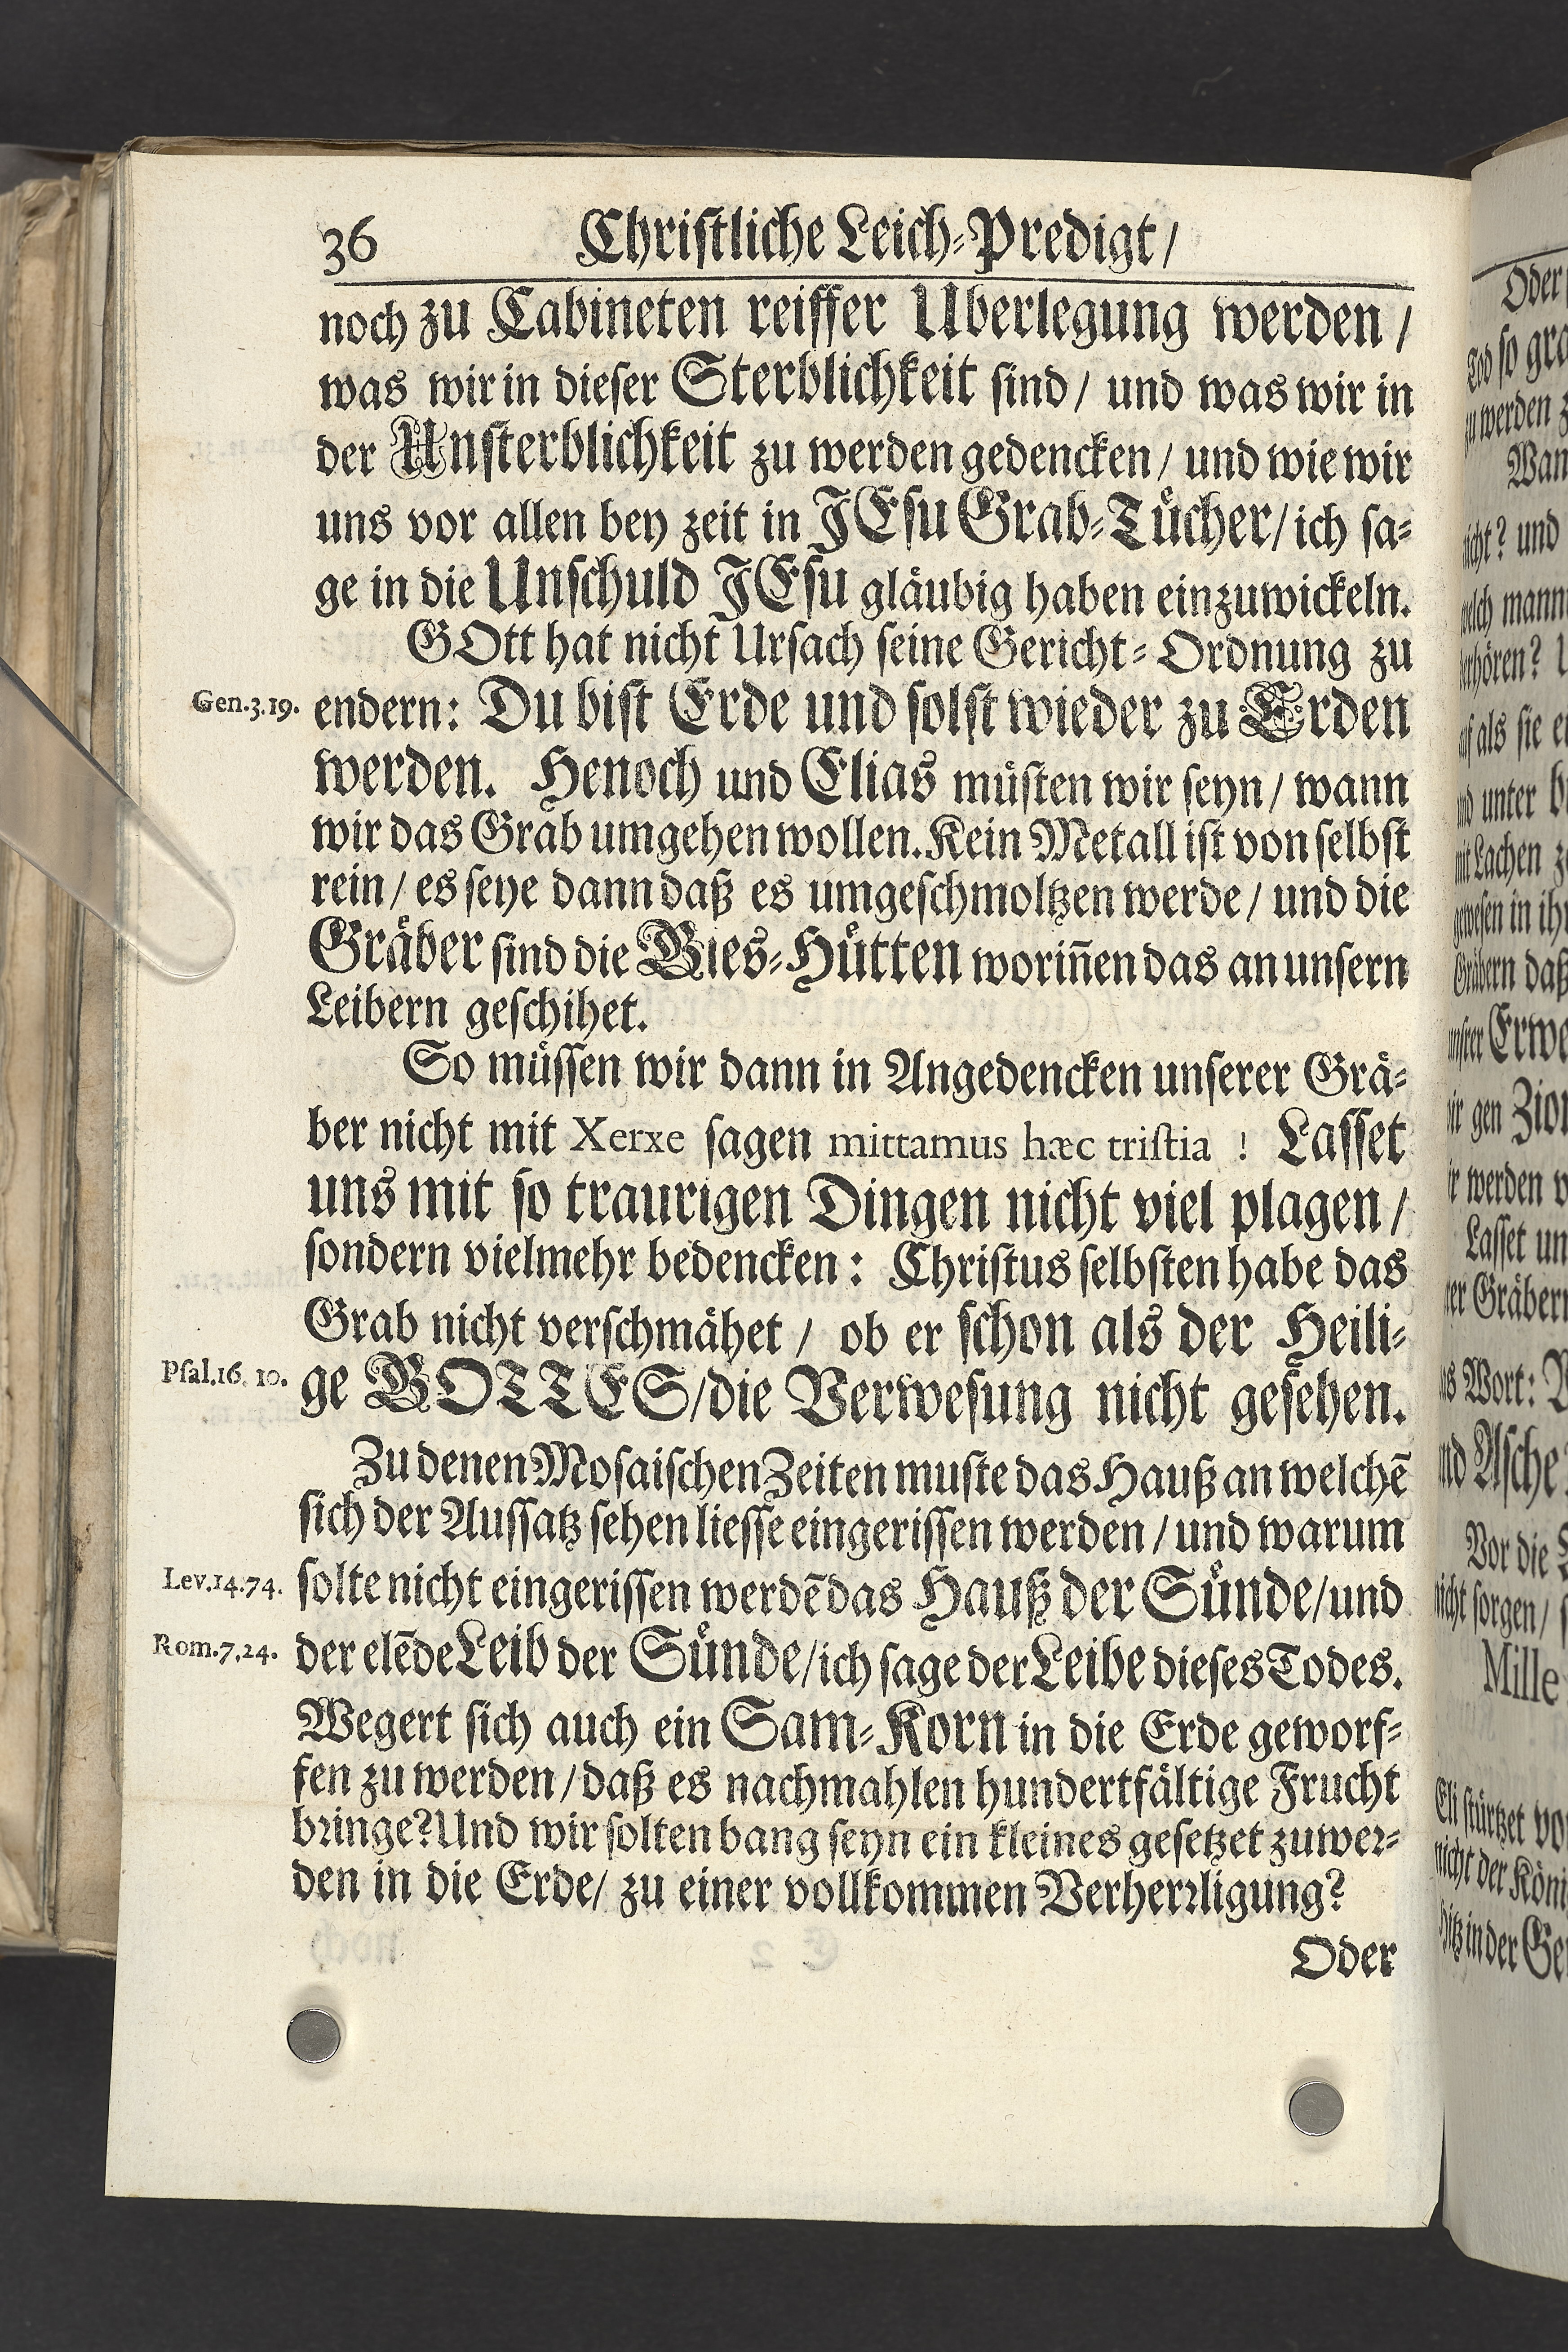 36 Chriſtliche Leich-Predigt/
noch zu Cabineten reiffer Uberlegung werden/
was wir in dieſer Sterblichkeit ſind/ und was wir in
der Unſterblichkeit zu werden gedencken/ und wie wir
uns vor allen bey zeit in JEſu Grab-Tuͤcher/ ich ſa-
ge in die Unſchuld JEſu glaͤubig haben einzuwickeln.
GOtt hat nicht Urſach ſeine Gericht-Ordnung zu
Gen.3.19.
endern: Du biſt Erde und ſolſt wieder zu Erden
werden. Henoch und Elias muͤſten wir ſeyn/ wann
wir das Grab umgehen wollen. Kein Metall iſt von ſelbſt
rein/ es ſeye dann daß es umgeſchmoltzen werde/ und die
Graͤber ſind die Gies-Huͤtten worin̄en das an unſern
Leibern geſchihet.
So muͤſſen wir dann in Angedencken unſerer Graͤ-
ber nicht mit Xerxe ſagen mittamus hæc triſtia! Laſſet
uns mit ſo traurigen Dingen nicht viel plagen/
ſondern vielmehr bedencken: Chriſtus ſelbſten habe das
Grab nicht verſchmaͤhet/ ob er ſchon als der Heili-
Pſal.16. 10.
ge GOTTES/die Verweſung nicht geſehen.
Zu denen Moſaiſchen Zeiten muſte das Hauß an welchē
ſich der Auſſatz ſehen lieſſe eingeriſſen werden/ und warum
Lev.14.74.
ſolte nicht eingeriſſen werdē das Hauß der Suͤnde/und
Rom.7,24.
der elēde Leib der Suͤnde/ich ſage der Leibe dieſes Todes.
Wegert ſich auch ein Sam-Korn in die Erde geworf-
fen zu werden/daß es nachmahlen hundertfaͤltige Frucht
bꝛinge? Und wir ſolten bang ſeyn ein kleines geſetzet zu weꝛ-
den in die Erde/ zu einer vollkommen Verherꝛligung?
Oder